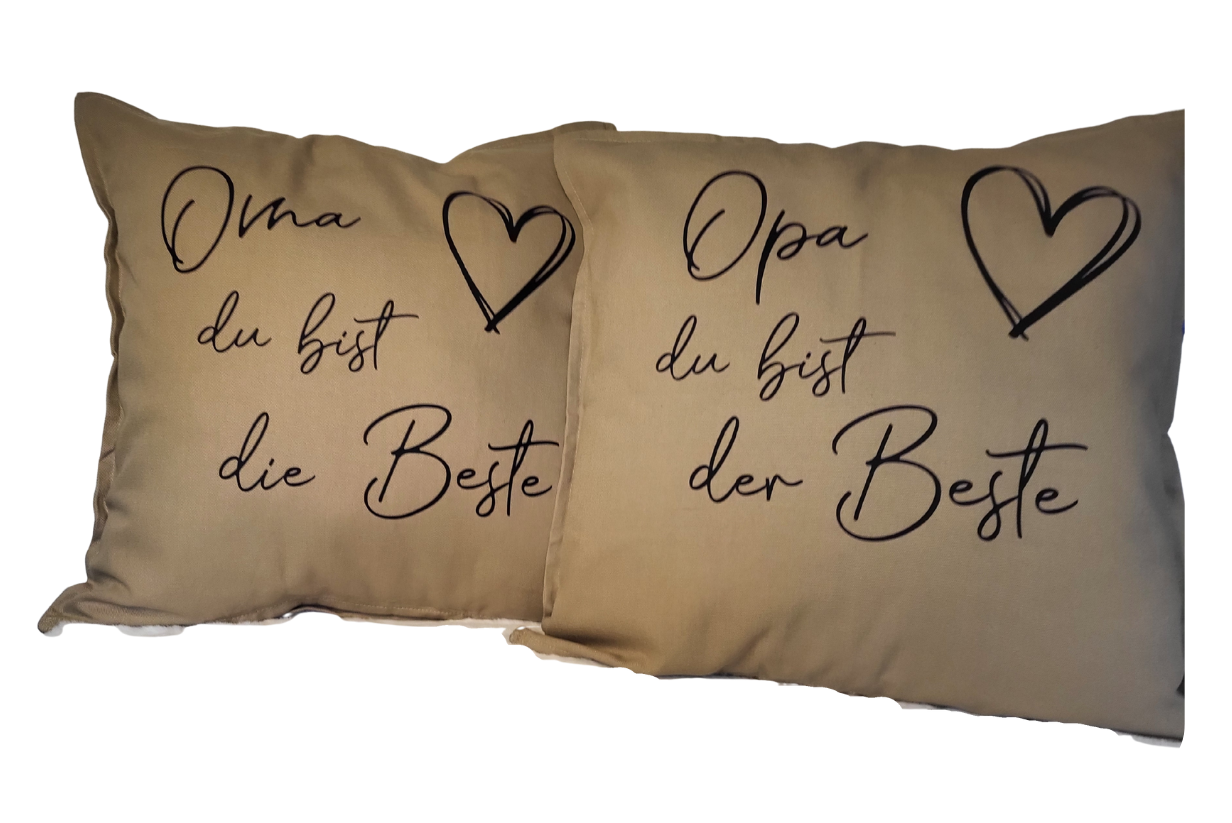 Oma
du bist
die Beste
Opa
du bist
der Beste